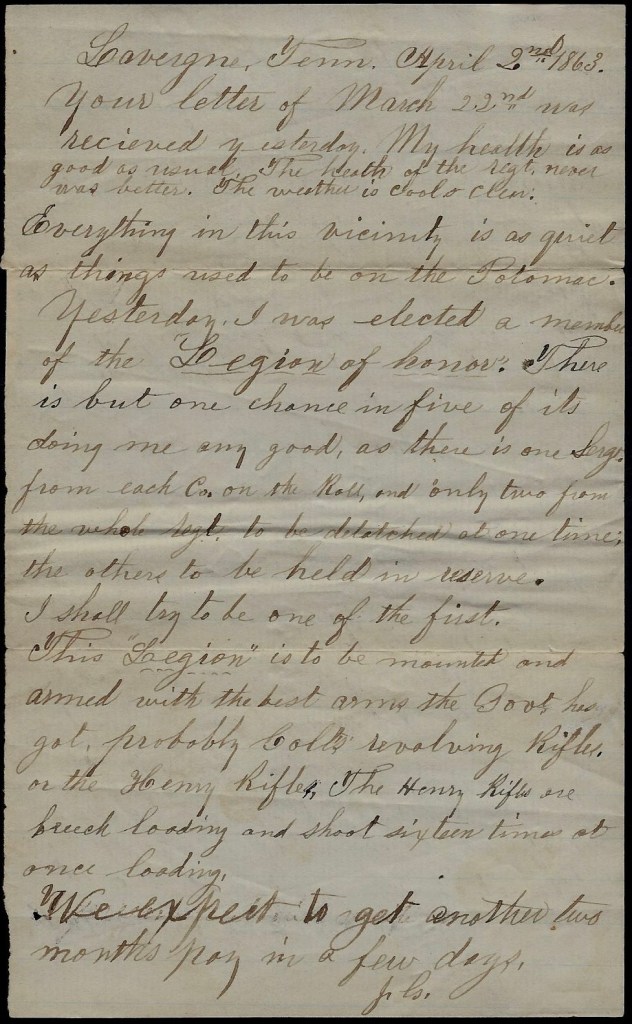 Lavergne, Tenn. April 2nd 1863.
Your letter of March 22nd was
recieved yesterday. My health is as
good as usual. The heath of the regt. never
was better. The weather is cool & clear.
Everything in this vicinity is as quiet
as things used to be on the Potomac.
Yesterday, I was elected a member
of the "Legion of honor". There
is but one chance in five of its
doing me any good, as there is one Serg.
from each Co. on the Roll, and only two from
the whole regt. to be detatched at one time;
the others to be held in reserve.
I shall try to be one of the first.
This "Legion" is to be mounted and
armed with the best arms the Govt. has
got, probably Colt's revolving Rifles,
or the Henry Rifles, The Henry Rifles are
breech loading and shoot sixteen times at
once loading.
We expect to get another two
months pay in a few days.